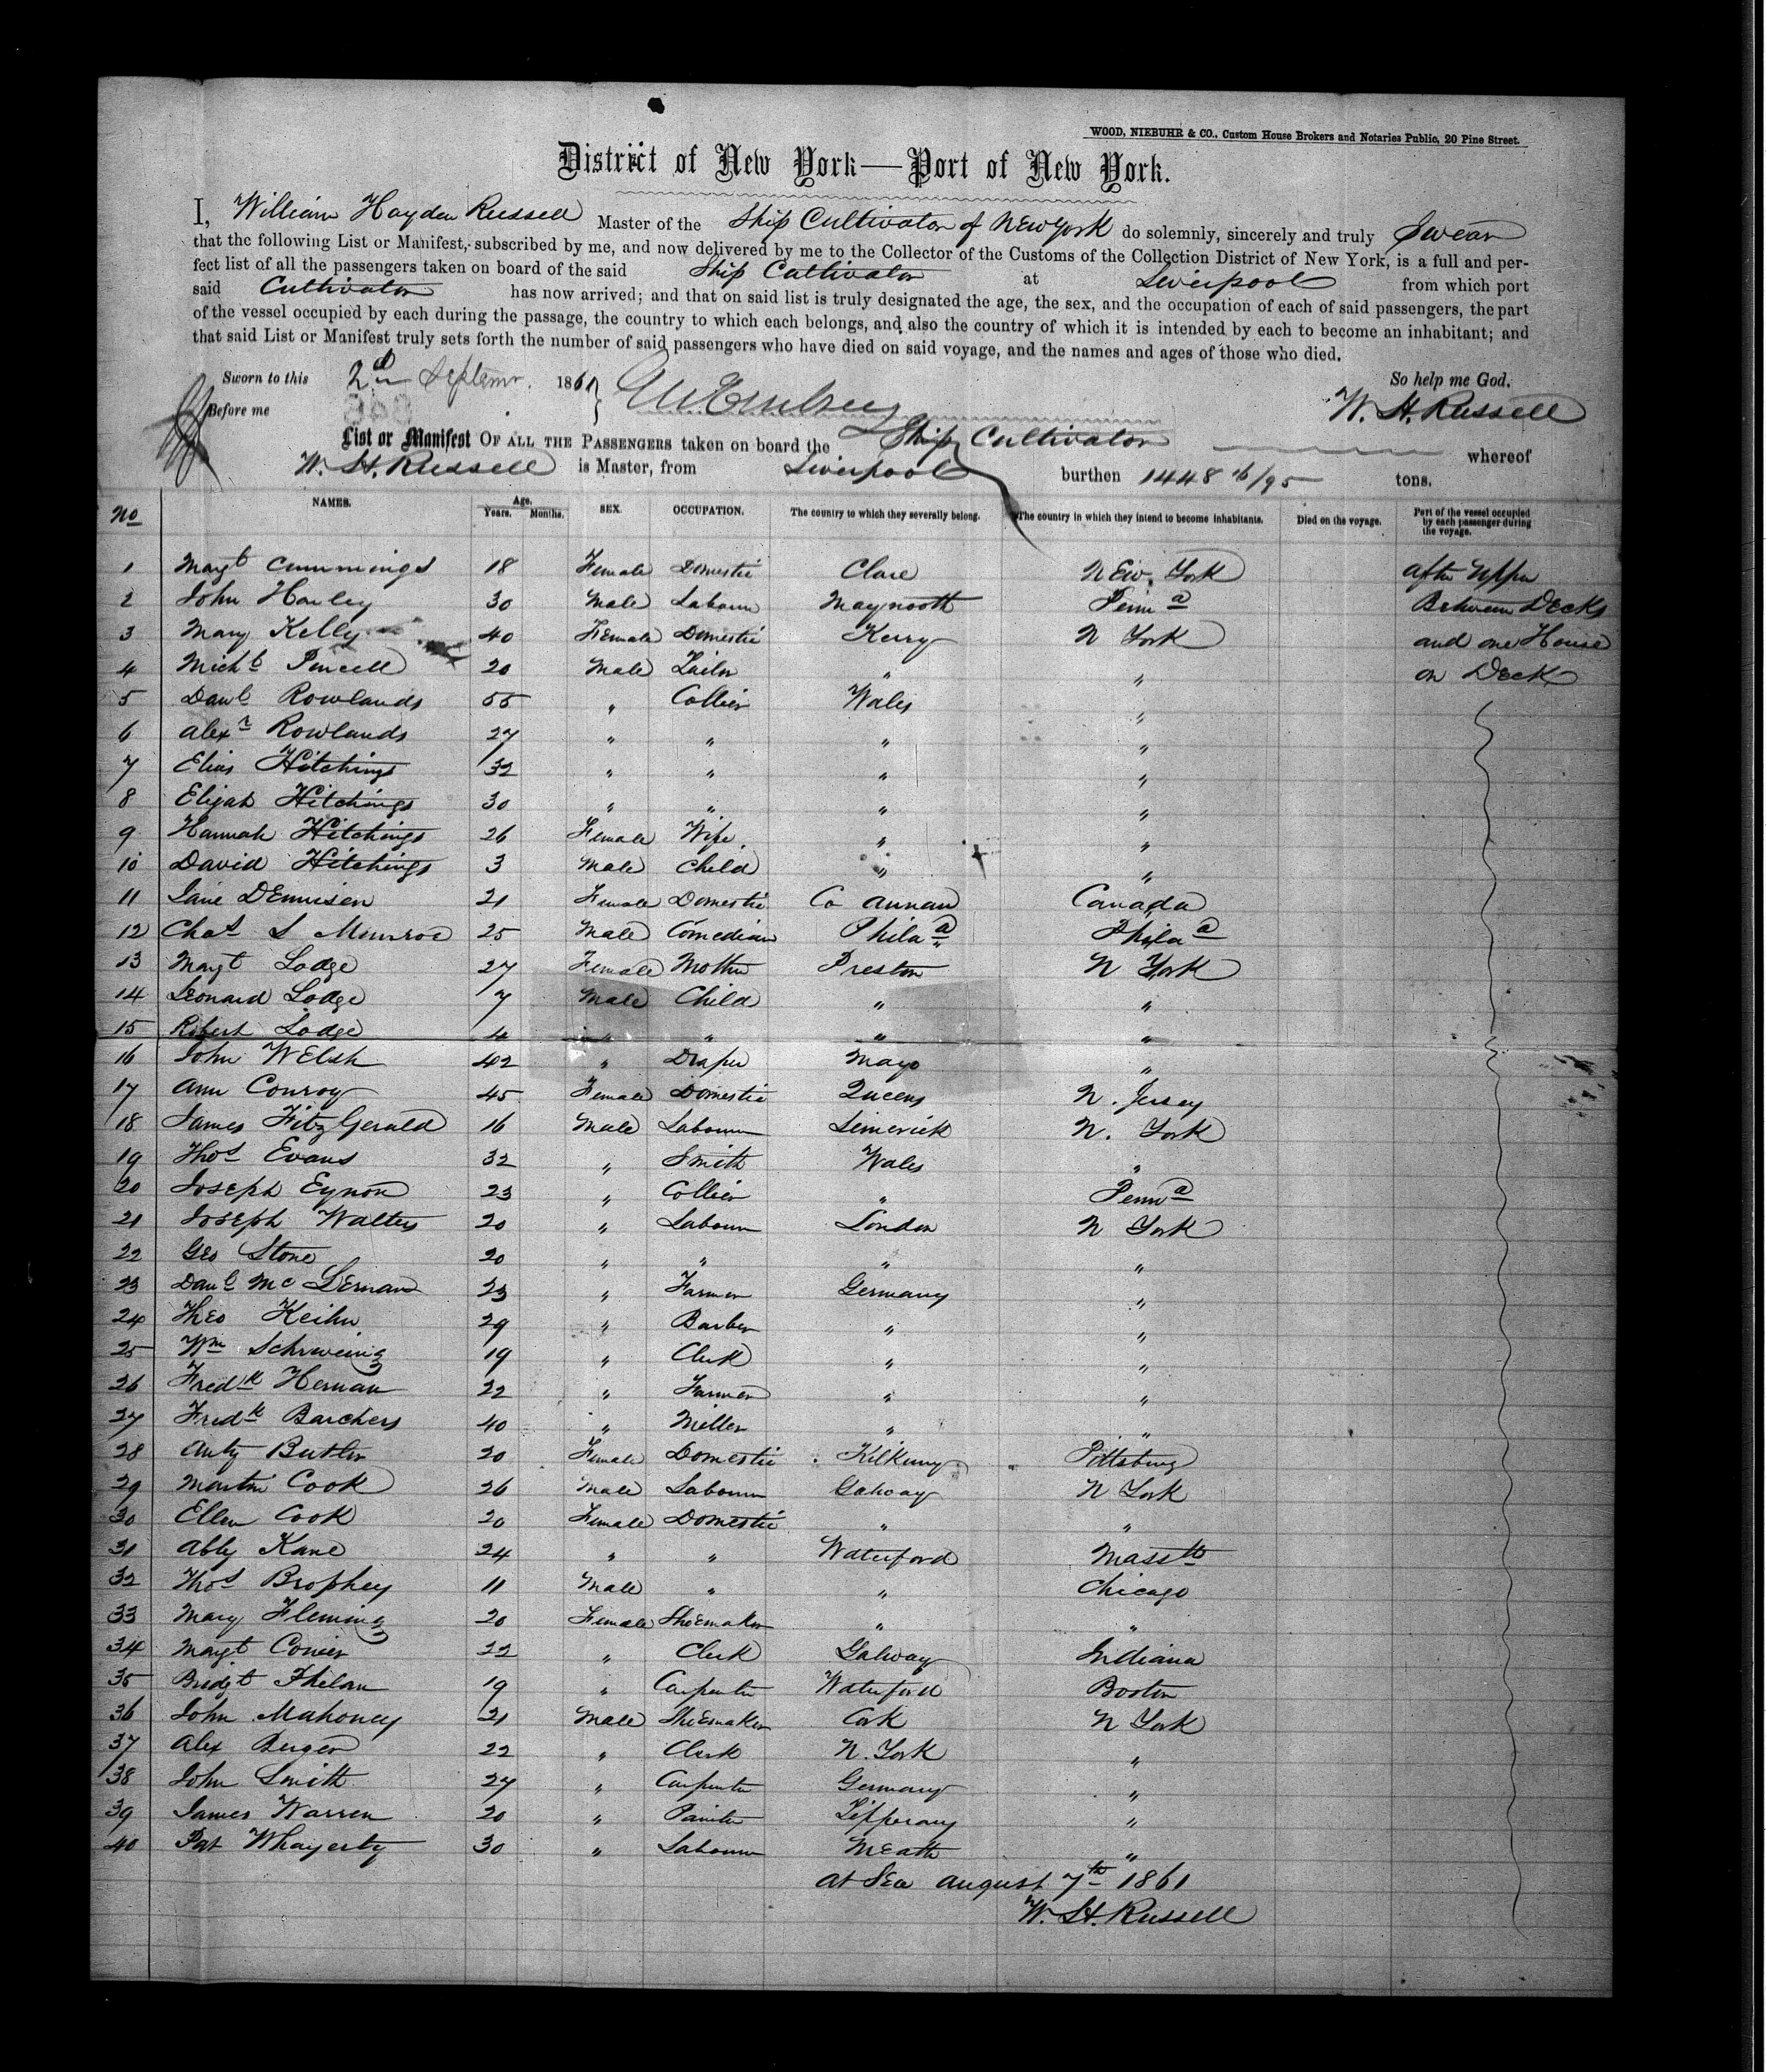 WOOD, NIEBUHR & CO., Custom House Brokers and Notaries Public, 20 Pine Street.
District of New York—Port of New York.
I, William Hayden Russell Master of the Ship Cultivator of New York do solemnly, sincerely and truly Swear
that the following List or Manifest, subscribed by me, and now delivered by me to the Collector of the Customs of the Collection District of New York, is a full and per-
fect list of all the passengers taken on board of the said Ship Cultivator at Liverpool from which port
said Cultivator has now arrived; and that on said list is truly designated the age, the sex, and the occupation of each of said passengers, the part
of the vessel occupied by each during the passage, the country to which each belongs, and also the country of which it is intended by each to become an inhabitant; and
that said List or Manifest truly sets forth the number of said passengers who have died on said voyage, and the names and ages of those who died.
Sworn to this 2d Septemr. 1861 So help me God.
Before me W. H. Russell
List or Manifest OF ALL THE PASSENGERS taken on board the Ship Cultivator whereof
W. H. Russell is Master, from Liverpool burthen 1448 /95 tons.
No NAMES. Age. Years. Months. SEX. OCCUPATION. The country to which they severally belong. The country in which they intend to become inhabitants. Died on the voyage. Part of the vessel occupied by each passenger during the voyage.
1 Margt Cummings 18 Female Domestic Clare New York after upper
2 John Harley 30 Male Labourer Maynooth Penna Between Decks
3 Mary Kelly 40 Female Domestic Kerry N York and one House
4 Michl Purcell 20 Male Tailor " " on Deck
5 Danl Rowlands 55 " Collier Wales "
6 Alexr Rowlands 27 " " " "
7 Elias Hitchings 32 " " " "
8 Elijah Hitchings 30 " " " "
9 Hannah Hitchings 26 Female Wife " "
10 David Hitchings 3 Male Child " "
11 Jane Dennison 21 Female Domestic Co Annan Canada
12 Chas S Munroe 25 Male Comedian Phila Phila
13 Margt Lodge 27 Female Mother Preston N York
14 Leonard Lodge 7 Male Child " "
15 Robert Lodge 4 " " " "
16 John Welsh 42 " Draper Mayo "
17 Ann Conroy 45 Female Domestic Queens N. Jersey
18 James FitzGerald 16 Male Labourer Limerick N. York
19 Thos Evans 32 " Smith Wales "
20 Joseph Eynon 23 " Collier " Penna
21 Joseph Walters 20 " Labourer London N York
22 Geo Stone 20 " " " "
23 Danl Mc Lernan 23 " Farmer Germany "
24 Theo Keihn 29 " Barber " "
25 Wm Schrweing 19 " Clerk " "
26 Fredk Hernan 22 " Farmer " "
27 Fredk Barchers 40 " Miller " "
28 Anty Butler 20 Female Domestic Kilkenny Pittsburg
29 Martin Cook 26 Male Labourer Galway N York
30 Ellen Cook 20 Female Domestic " "
31 Abby Kane 24 " " Waterford Massts
32 Thos Brophey 11 Male " " Chicago
33 Mary Fleming 20 Female Shoemaker " "
34 Margt Conier 22 " Clerk Galway Indiana
35 Bridgt Phelan 19 " Carpenter Waterford Boston
36 John Mahoney 21 Male Shoemaker Cork N York
37 Alex Berger 22 " Clerk N. York "
38 John Smith 27 " Carpenter Germany "
39 James Warren 20 " Painter Tipperary "
40 Pat Whayerty 30 " Labourer Meath "
At Sea August 7th 1861
W. H. Russell